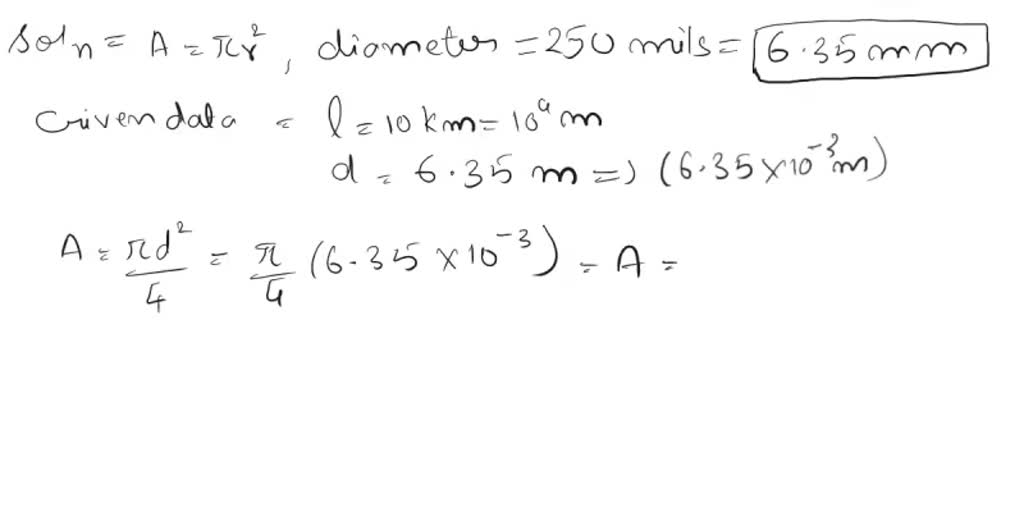 Soln = A = πr², diameter = 250 mils = 6.35 mm
Given data = l = 10 km = 10⁴ m
d = 6.35 m => (6.35 × 10⁻³ m)
A = πd²/4 = π/4 (6.35 × 10⁻³) = A =